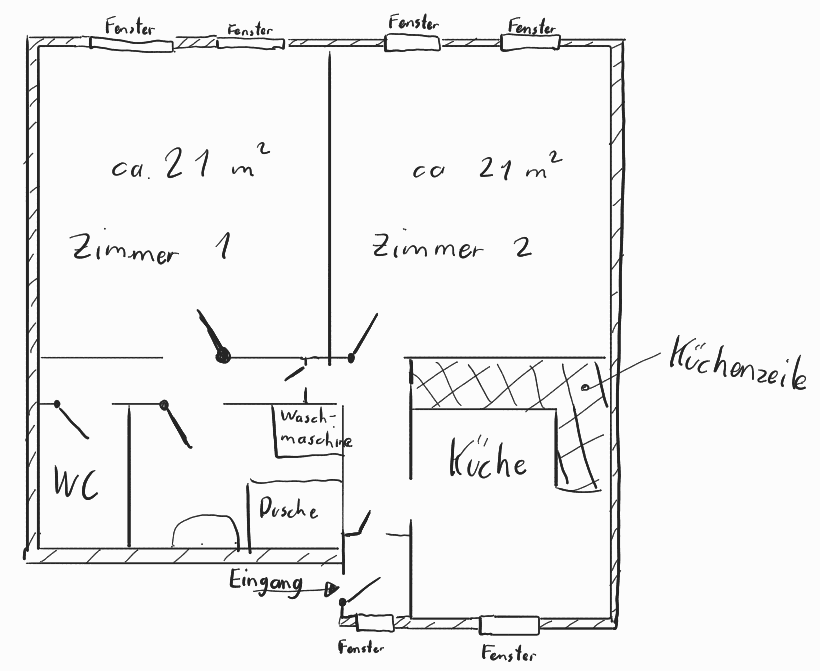 Fenster
Fenster
Fenster
Fenster
ca. 21 m²
Zimmer 1
ca 21 m²
Zimmer 2
Küchenzeile
Wasch-
maschine
Küche
WC
Dusche
Eingang
Fenster
Fenster